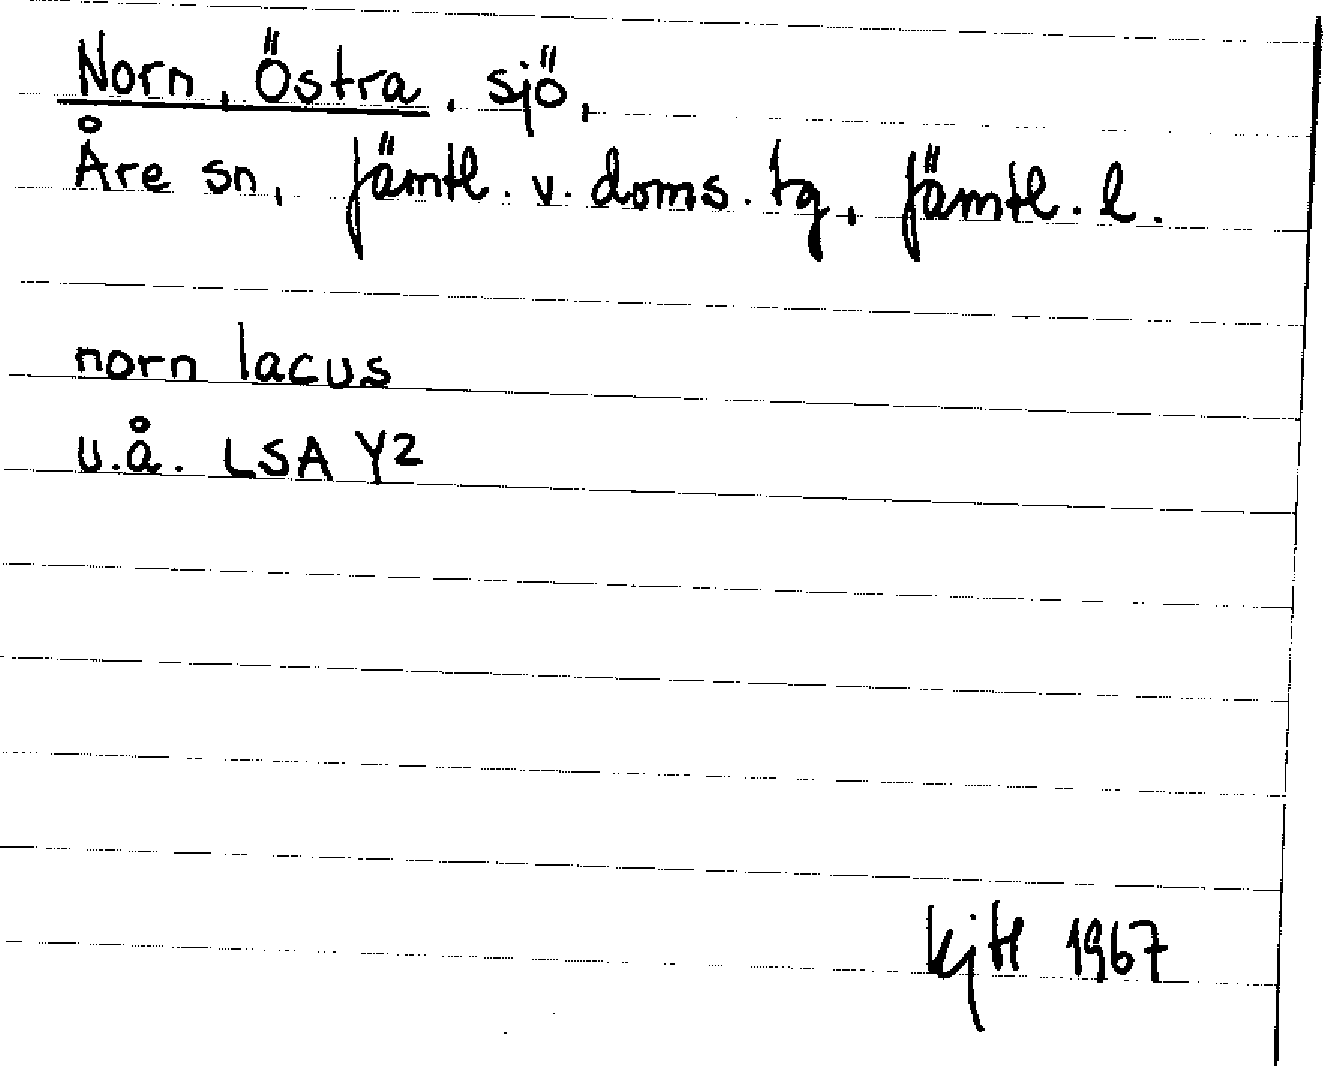 Norn, Östra, sjö,
Åre sn, Jämtl. v. doms. tg, Jämtl. l.
norn lacus
u.å. LSA Y2
1967